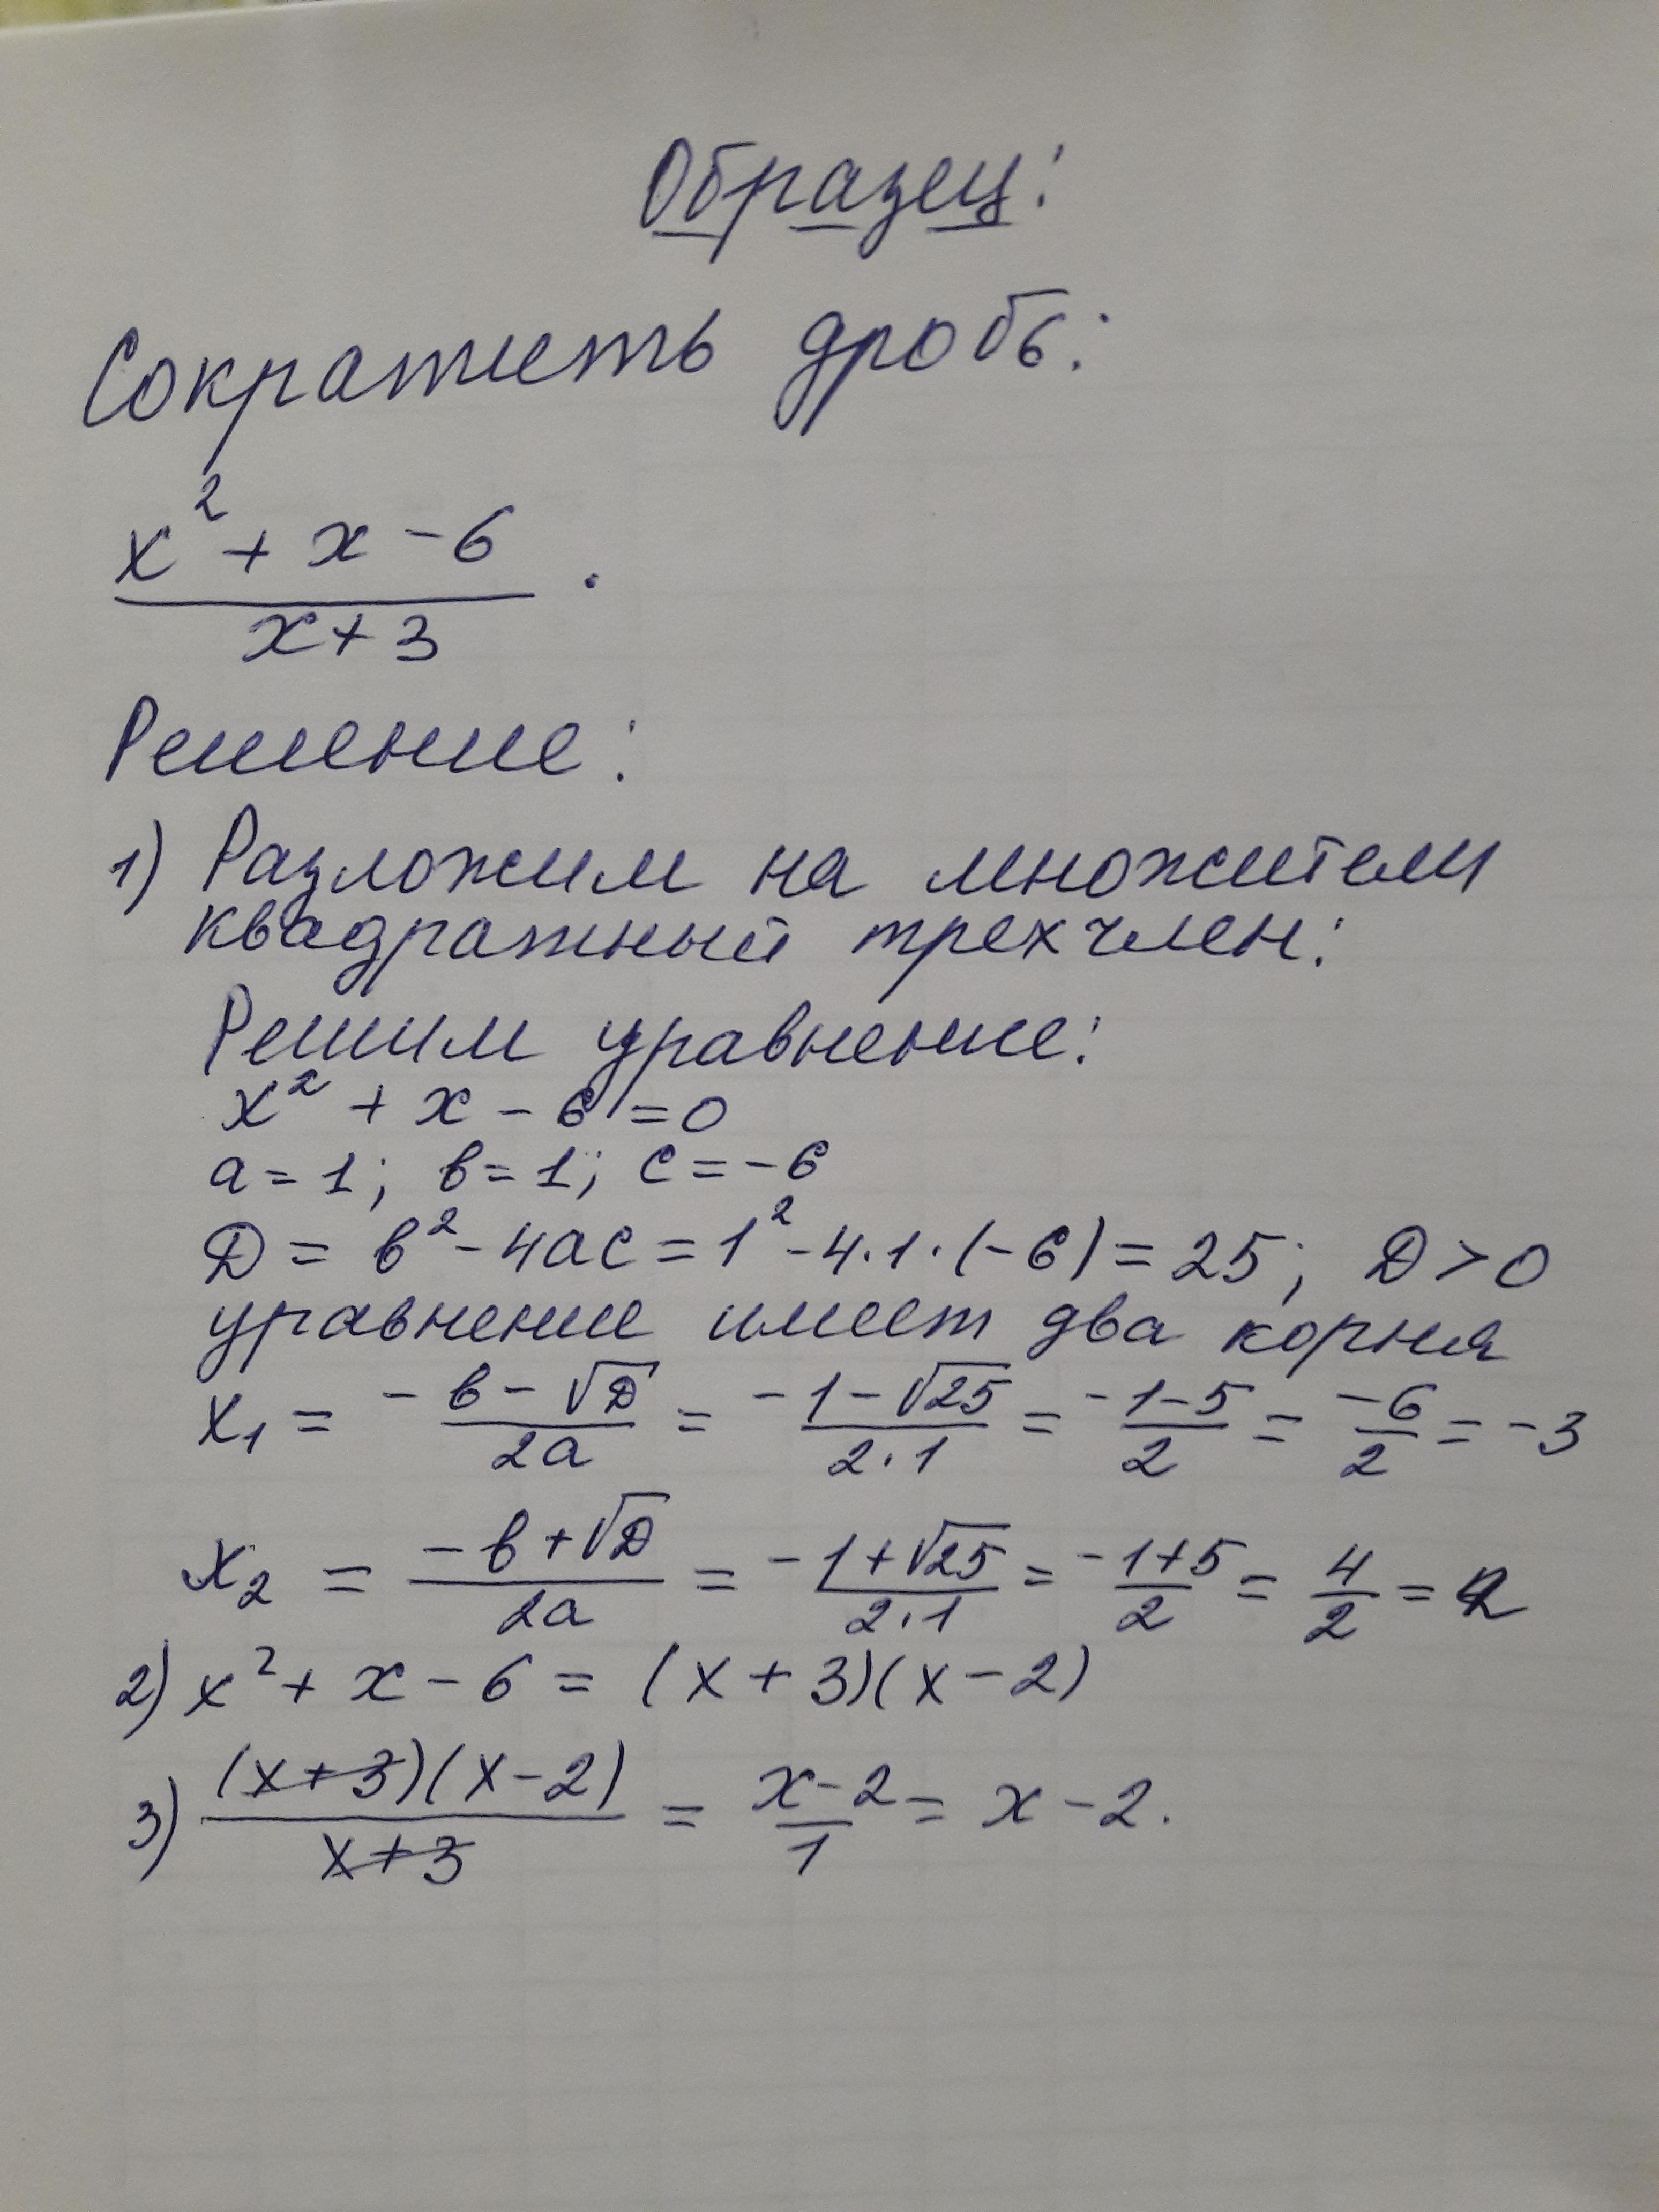 Образец:
Сократить дробь:
x² + x - 6 / x + 3 .
Решение:
1) Разложим на множители
квадратный трехчлен:
Решим уравнение:
x² + x - 6 = 0
a = 1; в = 1; c = -6
D = в² - 4ac = 1² - 4·1·(-6) = 25; D > 0
уравнение имеет два корня
x₁ = -в - √D / 2a = -1 - √25 / 2·1 = -1-5 / 2 = -6 / 2 = -3
x₂ = -в + √D / 2a = -1 + √25 / 2·1 = -1+5 / 2 = 4 / 2 = 2
2) x² + x - 6 = (x + 3)(x - 2)
3) (x+3)(x-2) / x+3 = x-2 / 1 = x - 2.